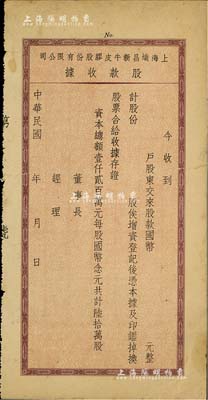 No.
上海熾昌新牛皮膠股份有限公司
股款收據
今收到
戶股東交來股款國幣 元整
計股份 股俟增資登記後憑本據及印鑑掉換
股票合給收據存證
資本總額壹仟貳百萬元每股國幣念元共計陸拾萬股
董事長
經理
中華民國 年 月 日
第 號